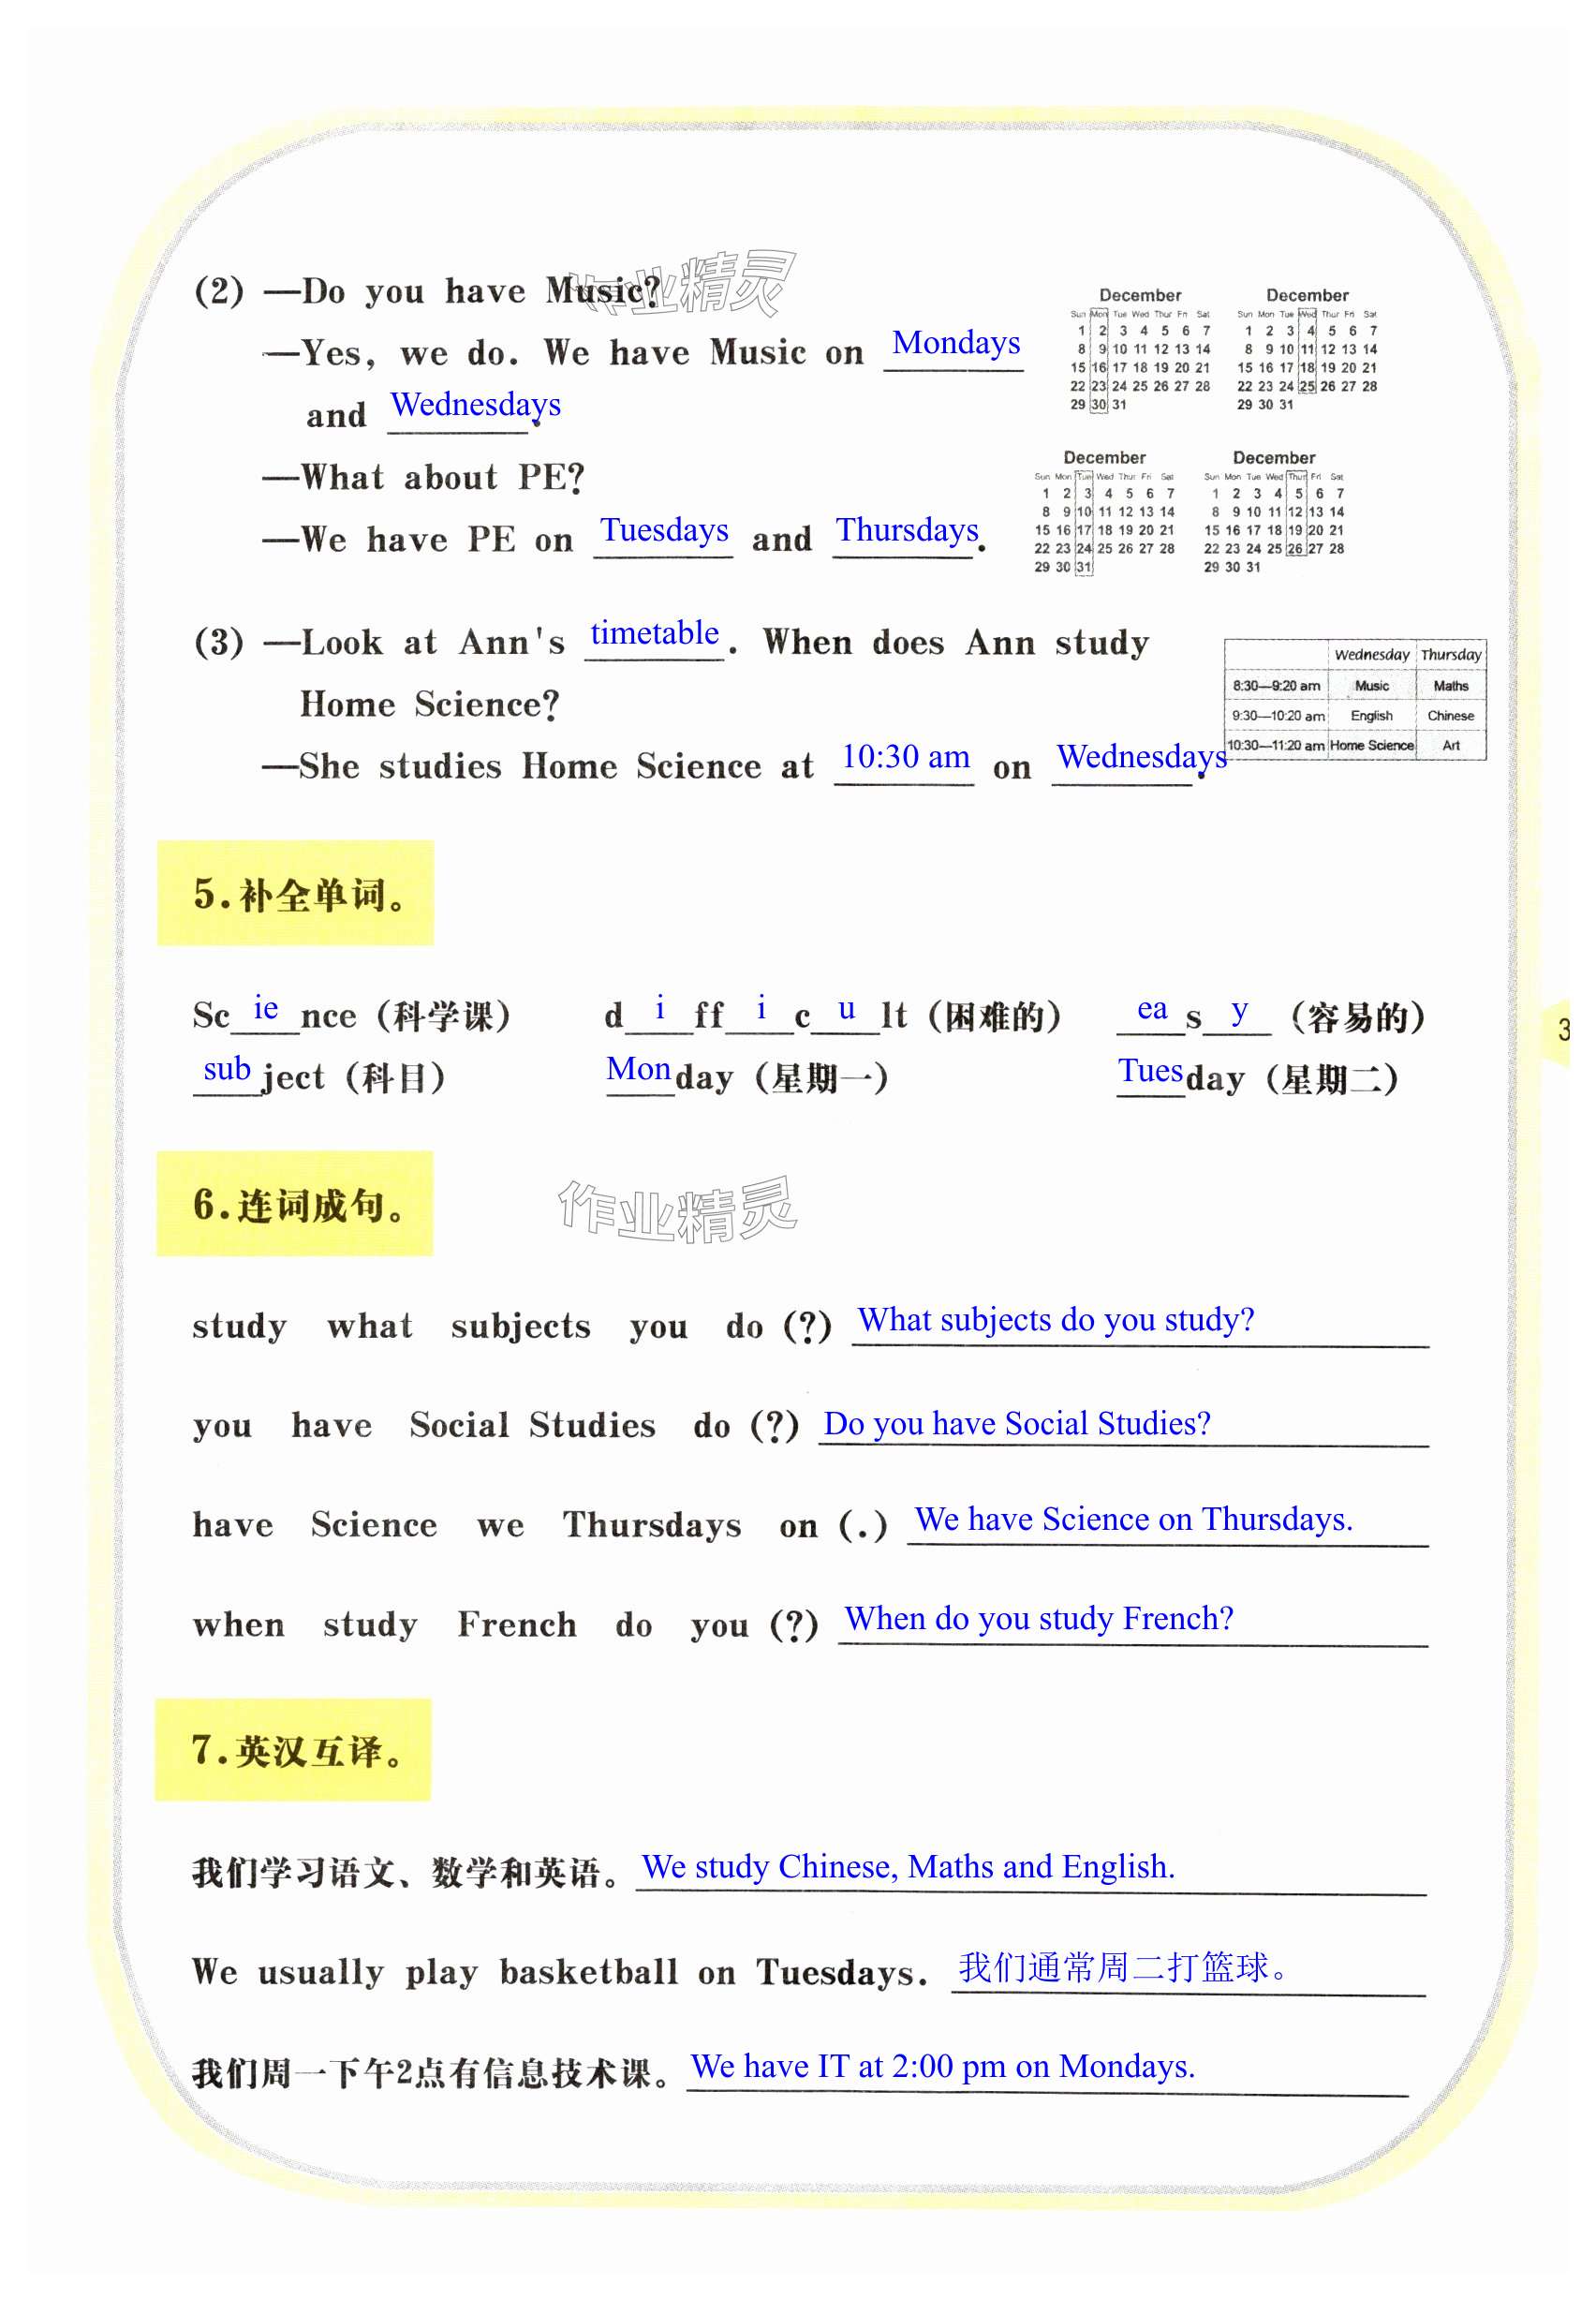 作业精灵
(2) —Do you have Music?
—Yes, we do. We have Music on Mondays
and Wednesdays.
—What about PE?
—We have PE on Tuesdays and Thursdays.
December
Sun Mon Tue Wed Thur Fri Sat
1 2 3 4 5 6 7
8 9 10 11 12 13 14
15 16 17 18 19 20 21
22 23 24 25 26 27 28
29 30 31
December
Sun Mon Tue Wed Thur Fri Sat
1 2 3 4 5 6 7
8 9 10 11 12 13 14
15 16 17 18 19 20 21
22 23 24 25 26 27 28
29 30 31
December
Sun Mon Tue Wed Thur Fri Sat
1 2 3 4 5 6 7
8 9 10 11 12 13 14
15 16 17 18 19 20 21
22 23 24 25 26 27 28
29 30 31
December
Sun Mon Tue Wed Thur Fri Sat
1 2 3 4 5 6 7
8 9 10 11 12 13 14
15 16 17 18 19 20 21
22 23 24 25 26 27 28
29 30 31
(3) —Look at Ann's timetable. When does Ann study
Home Science?
—She studies Home Science at 10:30 am on Wednesdays.
Wednesday Thursday
8:30—9:20 am Music Maths
9:30—10:20 am English Chinese
10:30—11:20 am Home Science Art
5.补全单词。
Science（科学课） difficult（困难的） easy（容易的）
subject（科目） Monday（星期一） Tuesday（星期二）
3
6.连词成句。
作业精灵
study what subjects you do (?) What subjects do you study?
you have Social Studies do (?) Do you have Social Studies?
have Science we Thursdays on (.) We have Science on Thursdays.
when study French do you (?) When do you study French?
7.英汉互译。
我们学习语文、数学和英语。 We study Chinese, Maths and English.
We usually play basketball on Tuesdays. 我们通常周二打篮球。
我们周一下午2点有信息技术课。 We have IT at 2:00 pm on Mondays.